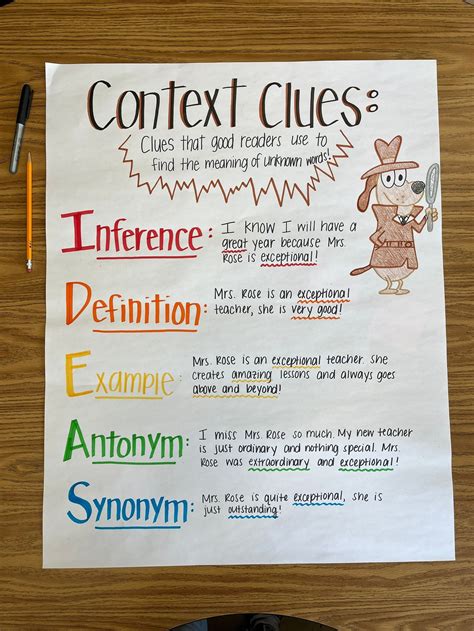 Context Clues:
Clues that good readers use to
find the meaning of unknown words!
Inference: I know I will have a
great year because Mrs.
Rose is exceptional!
Definition: Mrs. Rose is an exceptional
teacher, she is very good!
Example: Mrs. Rose is an exceptional teacher. She
creates amazing lessons and always goes
above and beyond!
Antonym: I miss Mrs. Rose so much. My new teacher
is just ordinary and nothing special. Mrs.
Rose was extraordinary and exceptional!
Synonym: Mrs. Rose is quite exceptional, she is
just outstanding!